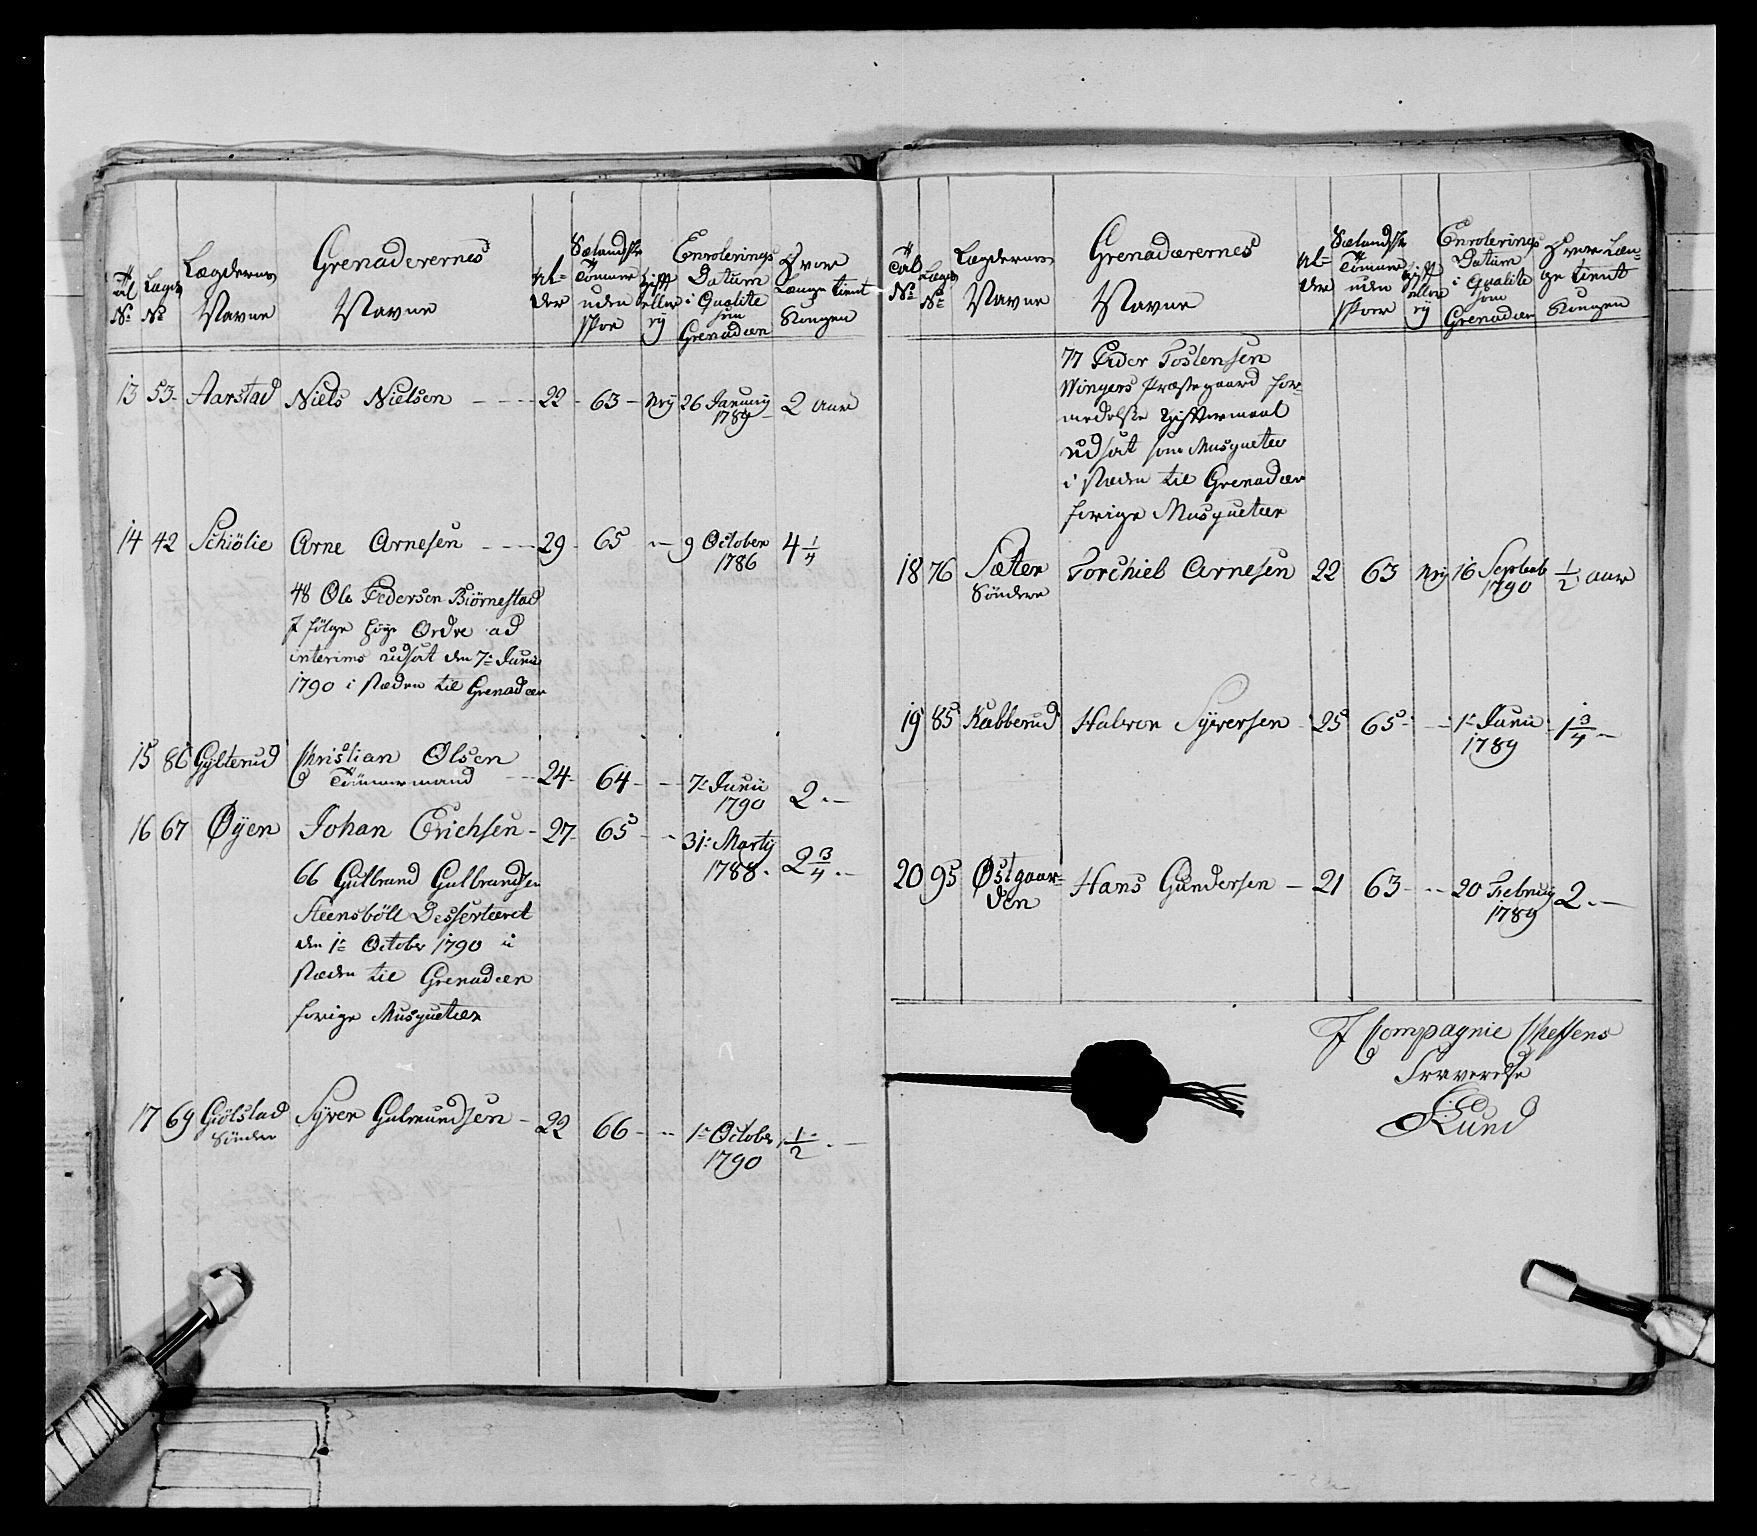 Tal No
Lægds No
Lægdernes Navne
Grenaderernes Navne
Al= der
Sælandske Tommer uden Skoe
Gift eller ey
Enrolerings Datum i Qvalite som Grenadeer
Hvor Længe tient Kongen
13 53 Aarstad Niels Nielsen 22 63 Ney 26 January 1789 2 aar
14 42 Schiölie Arne Arnesen 29 65 9 October 1786 4 1/4
48 Ole Pedersen Biörnestad
I fölge höye Ordre ad
interims udsat den 7de Junii
1790 i stæden til Grenadeer
15 86 Gylterud Christian Olsen 24 64 7de Junii 1790 2
Tömmermand
16 67 Øyen Johan Erichsen 27 65 31te Martij 1788 2 3/4
66 Gulbrand Gulbrandsen
Steensböle Desserteret
den 1te October 1790 i
stæden til Grenadeer
forige Musqueteer
17 69 Giölstad Syver Gulmundsen 22 66 1te October 1790 1/2
Söndre
Tal No
Lægds No
Lægdernes Navne
Grenaderernes Navne
Al= der
Sælandske Tommer uden Skoer
Gift eller ey
Enrolerings Datum i Qvalite som Grenadeer
Hvor Læn= ge tient Kongen
77 Peder Tostensen
Wingers Præstegaard for=
medelste Gifftermaal
udsat som Musqueteer
i stæden til Grenadeer
forige Musqueteer
18 76 Sæter Torchiel Arnesen 22 63 Ney 16 Septemb 1790 1/2 aar
Söndere
19 85 Kabberud Halvor Syversen 25 65 1te Junii 1789 1 3/4
20 95 Østgaar= Hans Gundersen 21 63 20 February 1789 2
den
I Compagnie Cheffens
Fraværelse
Lund